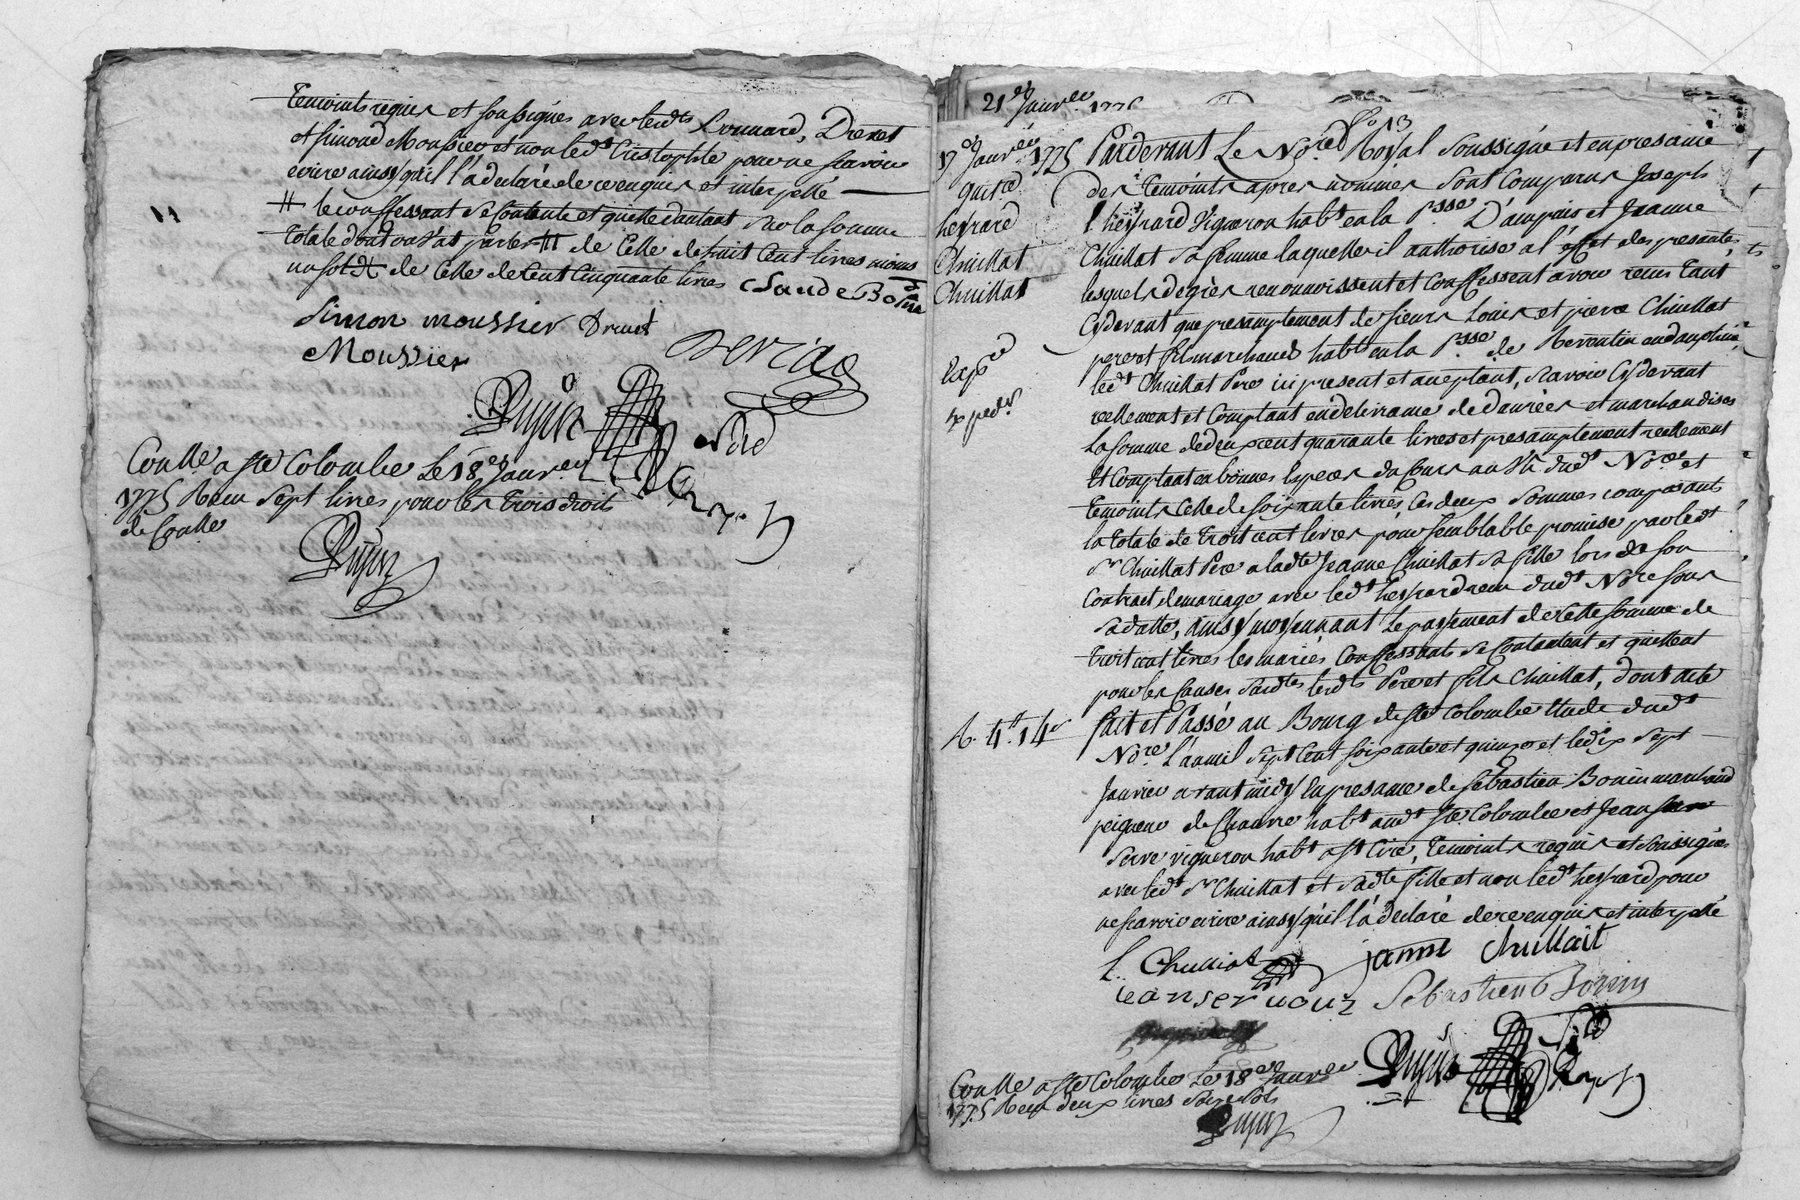 temoints requis et soussignés avec lesdts Louuard, Drevet
et simond Moussier et non ledt Cristophle pour ne scavoir
ecrire ainsy qu'il l'a declaré de ce enquis et interpellé
# le confessant se contente et quitte d'autant sur la somme
totale dont on s'at parler # de celle de huit cent livres moins
un sol # de celle de cent cinquante livres Claude Bo
simon moussier Drevet
Moussier
Dujin
nore
Conllé a ste Colombe le 18e Janver
1775 Receu sept livres pour les trois droits
de Conlle
Dujin
21e Janvier 1775
fo 13
17e Janvier 1775
quitce
heyrard
Chuillat
Chuillat
Expée
Expedée
Pardevant Le Nore Royal soussigné et en presance
des temoints apres nommés sont comparus Joseph
heyrard vigneron habt en la psse D'ampuis et Jeanne
Chuillat sa femme laquelle il authorise a l'effet des presentes,
lesquels de grès reconnoissent et confessent avoir receu tant
Cydevant que presamptement de sieurs Louis et pierre Chuillat
pere et fils marchands habts en la psse de Reventin en dauphiné,
ledt Chuillat Pere ici present et aceptant, scavoir Cydevant
reellement et comptant en delivrance de danrées et marchandises
la somme de deux cent quarante livres et presamptement reellement
et comptant en bonnes especes du cours au vû dudt Nore et
temoints celle de soixante livres, ces deux sommes composants
la totale de troit cent livres pour semblable promise par ledt
sr Chuillat Pere a ladte Jeanne Chuillat sa fille lors de son
Contract de mariage avec ledt heyrard receu dudt Nore sous
sa datte, ainsy moyennant le payement de cette somme de
troit cent livres les mariés confessants se contentent et quittent
pour les causes susdtes lesdts Pere et fils Chuillat, dont acte
R. 4# 14s
fait et Passé au Bourg de ste Colombe etude dudt
Nore L'an mil sept cent soixante et quinze et le dix sept
Janvier avant midy en presance de sébastien Bonin marchand
peigneur de chanvre habt audt ste Colombe et Jean
Serve vigneron habt a st Cire, temoints requis et soussignés
avec ledt sr Chuillat et sadte fille et non ledt heyrard pour
ne scavoir ecrire ainsy qu'il l'a declaré de ce enquis et interpellé
L. Chuillat
janne chuillait
jean serve
Sebastien Bonin
Dujin
nore
Conllé a ste Colombe le 18e Janver
1775 Receu deux livres seize sols
Dujin